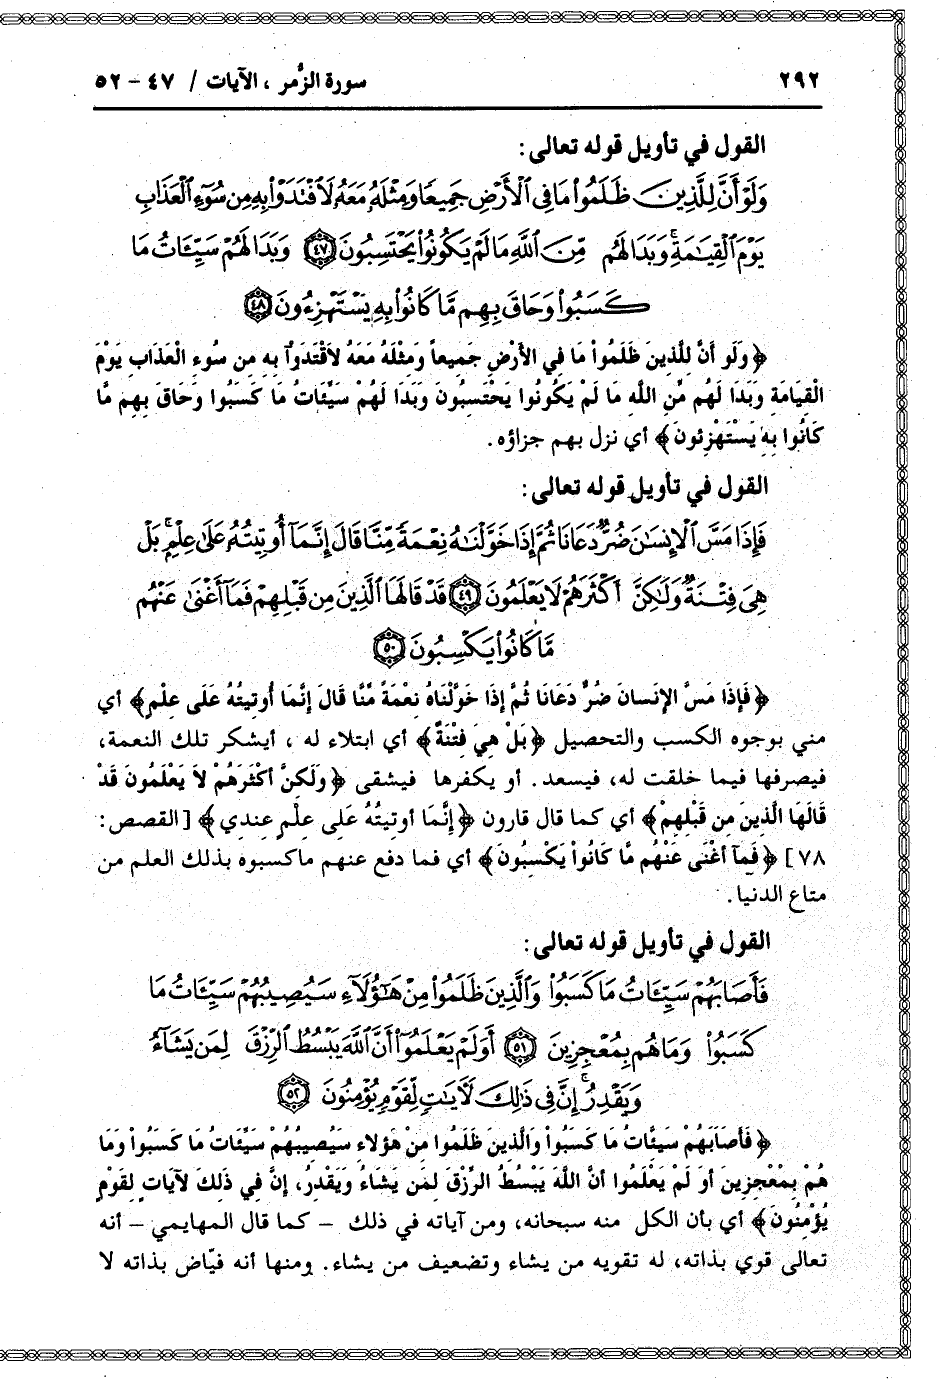 ٢٩٢ سورة الزُّمر ، الآيات / ٤٧ – ٥٢
القول في تأويل قوله تعالى:
وَلَوْ أَنَّ لِلَّذِينَ ظَلَمُوا۟ مَا فِى ٱلْأَرْضِ جَمِيعًا وَمِثْلَهُۥ مَعَهُۥ لَٱفْتَدَوْا۟ بِهِۦ مِن سُوٓءِ ٱلْعَذَابِ
يَوْمَ ٱلْقِيَٰمَةِ ۚ وَبَدَا لَهُم مِّنَ ٱللَّهِ مَا لَمْ يَكُونُوا۟ يَحْتَسِبُونَ ﴿٤٧﴾ وَبَدَا لَهُمْ سَيِّـَٔاتُ مَا
كَسَبُوا۟ وَحَاقَ بِهِم مَّا كَانُوا۟ بِهِۦ يَسْتَهْزِءُونَ ﴿٤٨﴾
﴿ وَلَو أَنَّ لِلَّذِينَ ظَلَمُواْ مَا فِي الأَرْضِ جَمِيعاً وَمِثْلَهُ مَعَهُ لاَفْتَدَوْاْ بِهِ مِن سُوءِ الْعَذَابِ يَوْمَ
الْقِيَامَةِ وَبَدَا لَهُم مِّنَ اللَّهِ مَا لَمْ يَكُونُوا يَحْتَسِبُونَ وَبَدَا لَهُمْ سَيِّئَاتُ مَا كَسَبُوا وَحَاقَ بِهِم مَّا
كَانُوا بِهِ يَسْتَهْزِئُونَ﴾ أي نزل بهم جزاؤه.
القول في تأويل قوله تعالى:
فَإِذَا مَسَّ ٱلْإِنسَٰنَ ضُرٌّ دَعَانَا ثُمَّ إِذَا خَوَّلْنَٰهُ نِعْمَةً مِّنَّا قَالَ إِنَّمَآ أُوتِيتُهُۥ عَلَىٰ عِلْمٍ ۚ بَلْ
هِىَ فِتْنَةٌ وَلَٰكِنَّ أَكْثَرَهُمْ لَا يَعْلَمُونَ ﴿٤٩﴾ قَدْ قَالَهَا ٱلَّذِينَ مِن قَبْلِهِمْ فَمَآ أَغْنَىٰ عَنْهُم
مَّا كَانُوا۟ يَكْسِبُونَ ﴿٥٠﴾
﴿فَإِذَا مَسَّ الإِنسانَ ضُرٌّ دَعَانَا ثُمَّ إِذَا خَوَّلْنَاهُ نِعْمَةً مِّنَّا قَالَ إِنَّمَا أُوتِيتُهُ عَلَى عِلْمٍ﴾ أي
مني بوجوه الكسب والتحصيل ﴿بَلْ هِيَ فِتْنَةٌ﴾ أي ابتلاء له ، أيشكر تلك النعمة،
فيصرفها فيما خلقت له، فيسعد. أو يكفرها فيشقى ﴿وَلَكِنَّ أَكْثَرَهُمْ لاَ يَعْلَمُونَ قَدْ
قَالَهَا الَّذِينَ مِن قَبْلِهِمْ﴾ أي كما قال قارون ﴿إِنَّمَا أوتيتُهُ عَلَى عِلْمٍ عندي﴾ [القصص:
٧٨] ﴿فَمآ أغْنَى عَنْهُم مَّا كَانُواْ يَكْسِبُونَ﴾ أي فما دفع عنهم ماكسبوه بذلك العلم من
متاع الدنيا.
القول في تأويل قوله تعالى:
فَأَصَابَهُمْ سَيِّـَٔاتُ مَا كَسَبُوا۟ وَٱلَّذِينَ ظَلَمُوا۟ مِنْ هَٰٓؤُلَآءِ سَيُصِيبُهُمْ سَيِّـَٔاتُ مَا
كَسَبُوا۟ وَمَا هُم بِمُعْجِزِينَ ﴿٥١﴾ أَوَلَمْ يَعْلَمُوٓا۟ أَنَّ ٱللَّهَ يَبْسُطُ ٱلرِّزْقَ لِمَن يَشَآءُ
وَيَقْدِرُ ۚ إِنَّ فِى ذَٰلِكَ لَءَايَٰتٍ لِّقَوْمٍ يُؤْمِنُونَ ﴿٥٢﴾
﴿ فَأَصَابَهُمْ سَيِّئَاتُ مَا كَسَبُواْ وَالَّذِينَ ظَلَمُوا مِنْ هَؤُلاءِ سَيُصِيبُهُمْ سَيِّئَاتُ مَا كَسَبُواْ وَمَا
هُمْ بِمُعْجِزِينَ أوَ لَمْ يَعْلَمُوا أنَّ اللَّهَ يَبْسُطُ الرِّزْقَ لِمَن يَشَاءُ وَيَقْدِرُ، إنَّ فِي ذَلِكَ لآيَاتٍ لِقَوْمٍ
يُؤْمِنُونَ﴾ أي بأن الكل منه سبحانه، ومن آياته في ذلك – كما قال المهايمي – أنه
تعالى قوي بذاته، له تقويه من يشاء وتضعيف من يشاء. ومنها أنه فيّاض بذاته لا